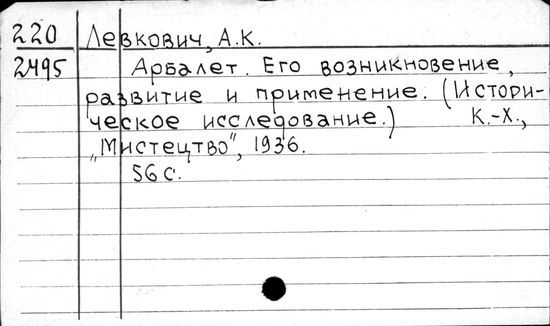 220 Левкович, А.К.
2495 Арбалет. Его возникновение,
развитие и применение. (Истори-
ческое исследование.) К.-Х.,
„Мистецтво", 1936.
56 с.